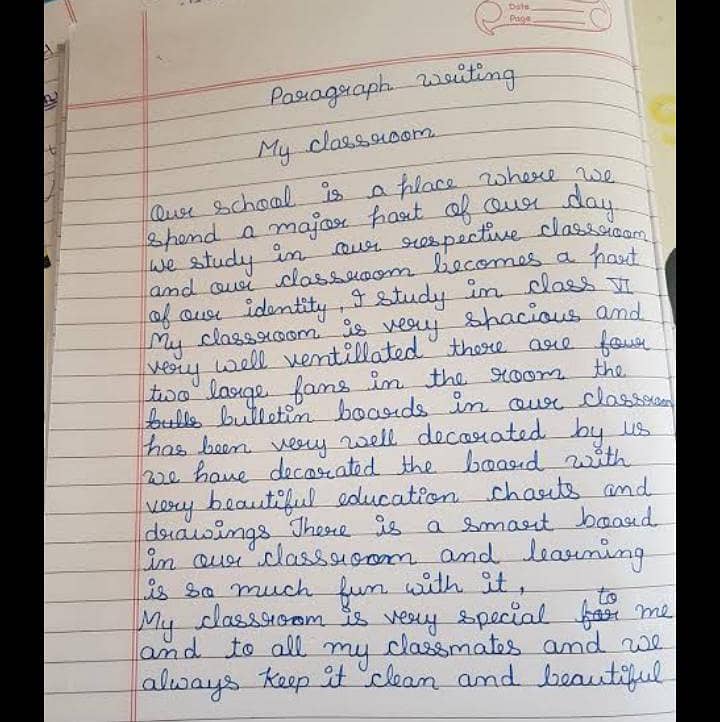 Date
Page
Paragraph writing
My classroom
Our school is a place where we
spend a major part of our day
we study in our respective classroom
and our classroom becomes a part
of our identity, I study in class VI
My classroom is very spacious and
very well ventillated there are four
two large fans in the room the
bulle bulletin boards in our classroom
has been very well decorated by us
we have decorated the board with
very beautiful education charts and
drawings There is a smart board
in our classroom and learning
is so much fun with it,
My classroom is very special for to me
and to all my classmates and we
always keep it clean and beautiful